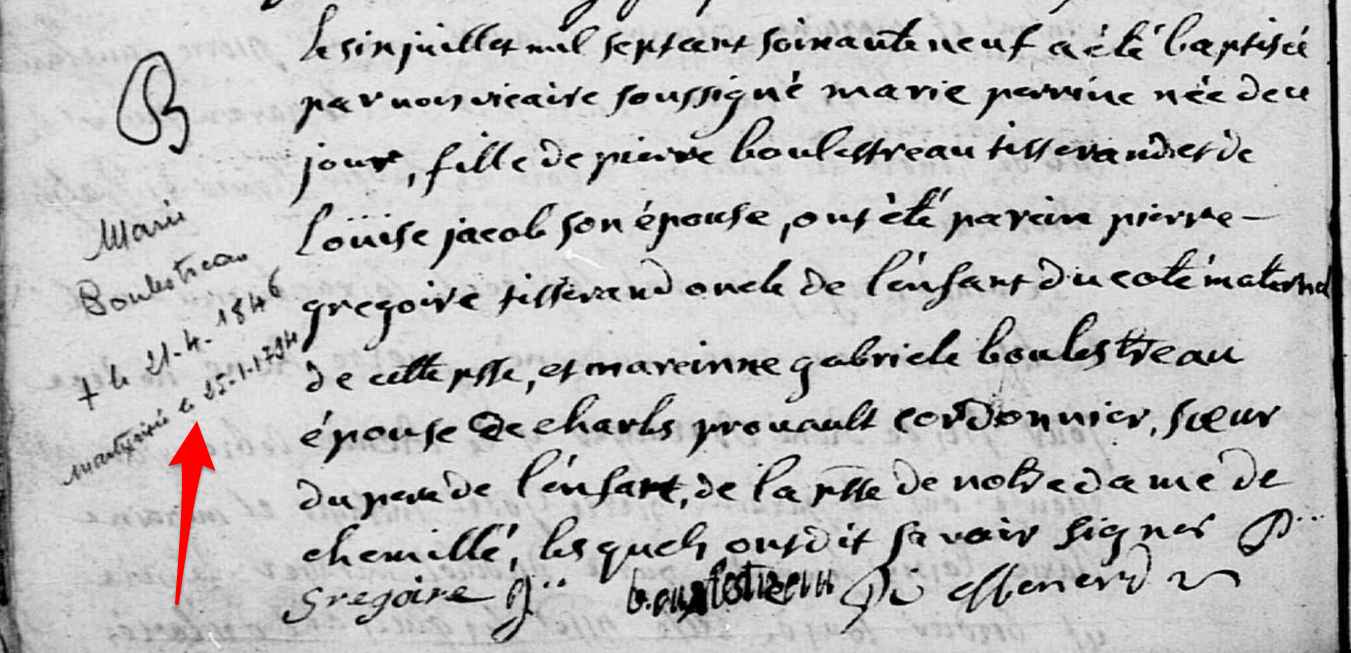 B
Marie
Boulestreau
† le 21-4-1846
martyrisée le 25-1-1794
le six juillet mil sept cent soixante neuf a été baptisée
par nous vicaire soussigné marie perrine née de ce
jour, fille de pierre boulestreau tisserand et de
Loüise jacob son épouse, ont été parein pierre –
gregoire tisserand oncle de l'énfant du coté maternel
de cette psse, et mareinne gabriele boulestreau
épouse de charles prouault cordonnier, sœur
du pere de l'énfant, de la psse de notre dame de
chemillé, lesquels ont dit savoir signer P..
Gregoire g.. boulestreau